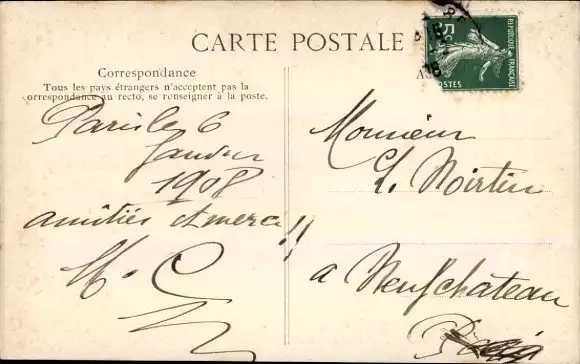 CARTE POSTALE
Correspondance
Tous les pays étrangers n'acceptent pas la
correspondance au recto, se renseigner à la poste.
A
RÉPUBLIQUE FRANÇAISE
5c
POSTES
Paris le 6
Janvier
1908
amitiés et merci !!
Monsieur
L. Noirtin
à Neufchateau